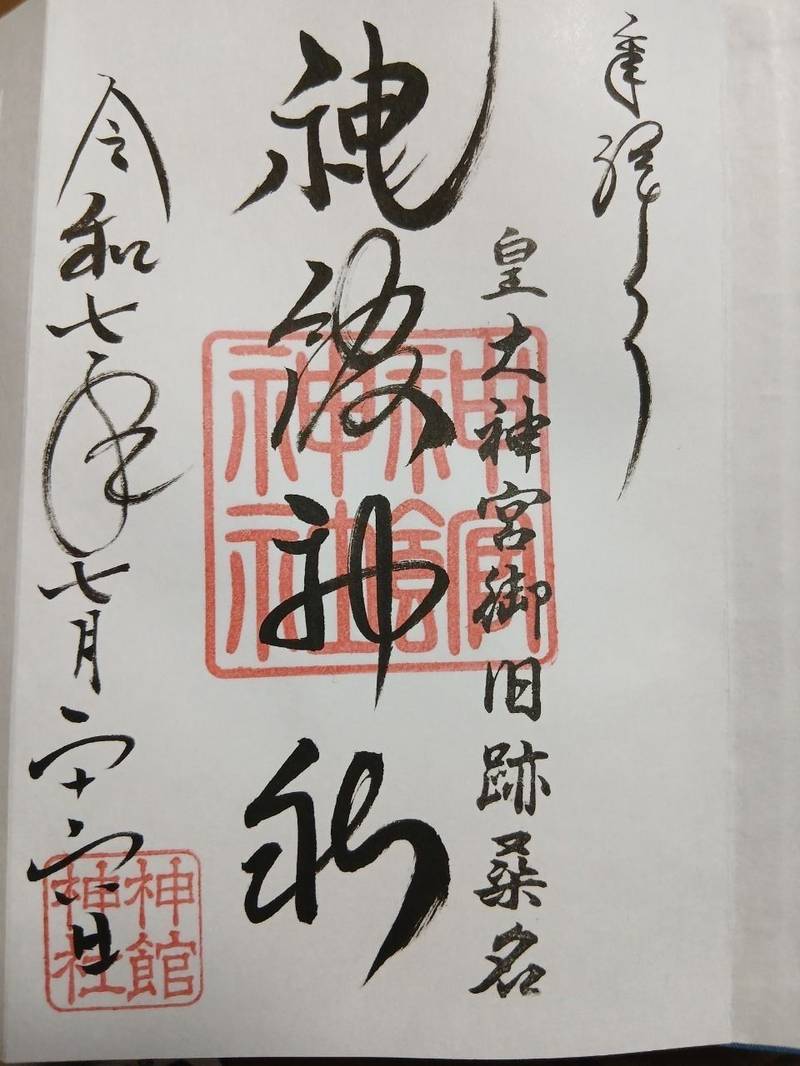 奉拝
皇大神宮御旧跡桑名
神館神社
令和七年七月二十六日
神館神社
神館神社